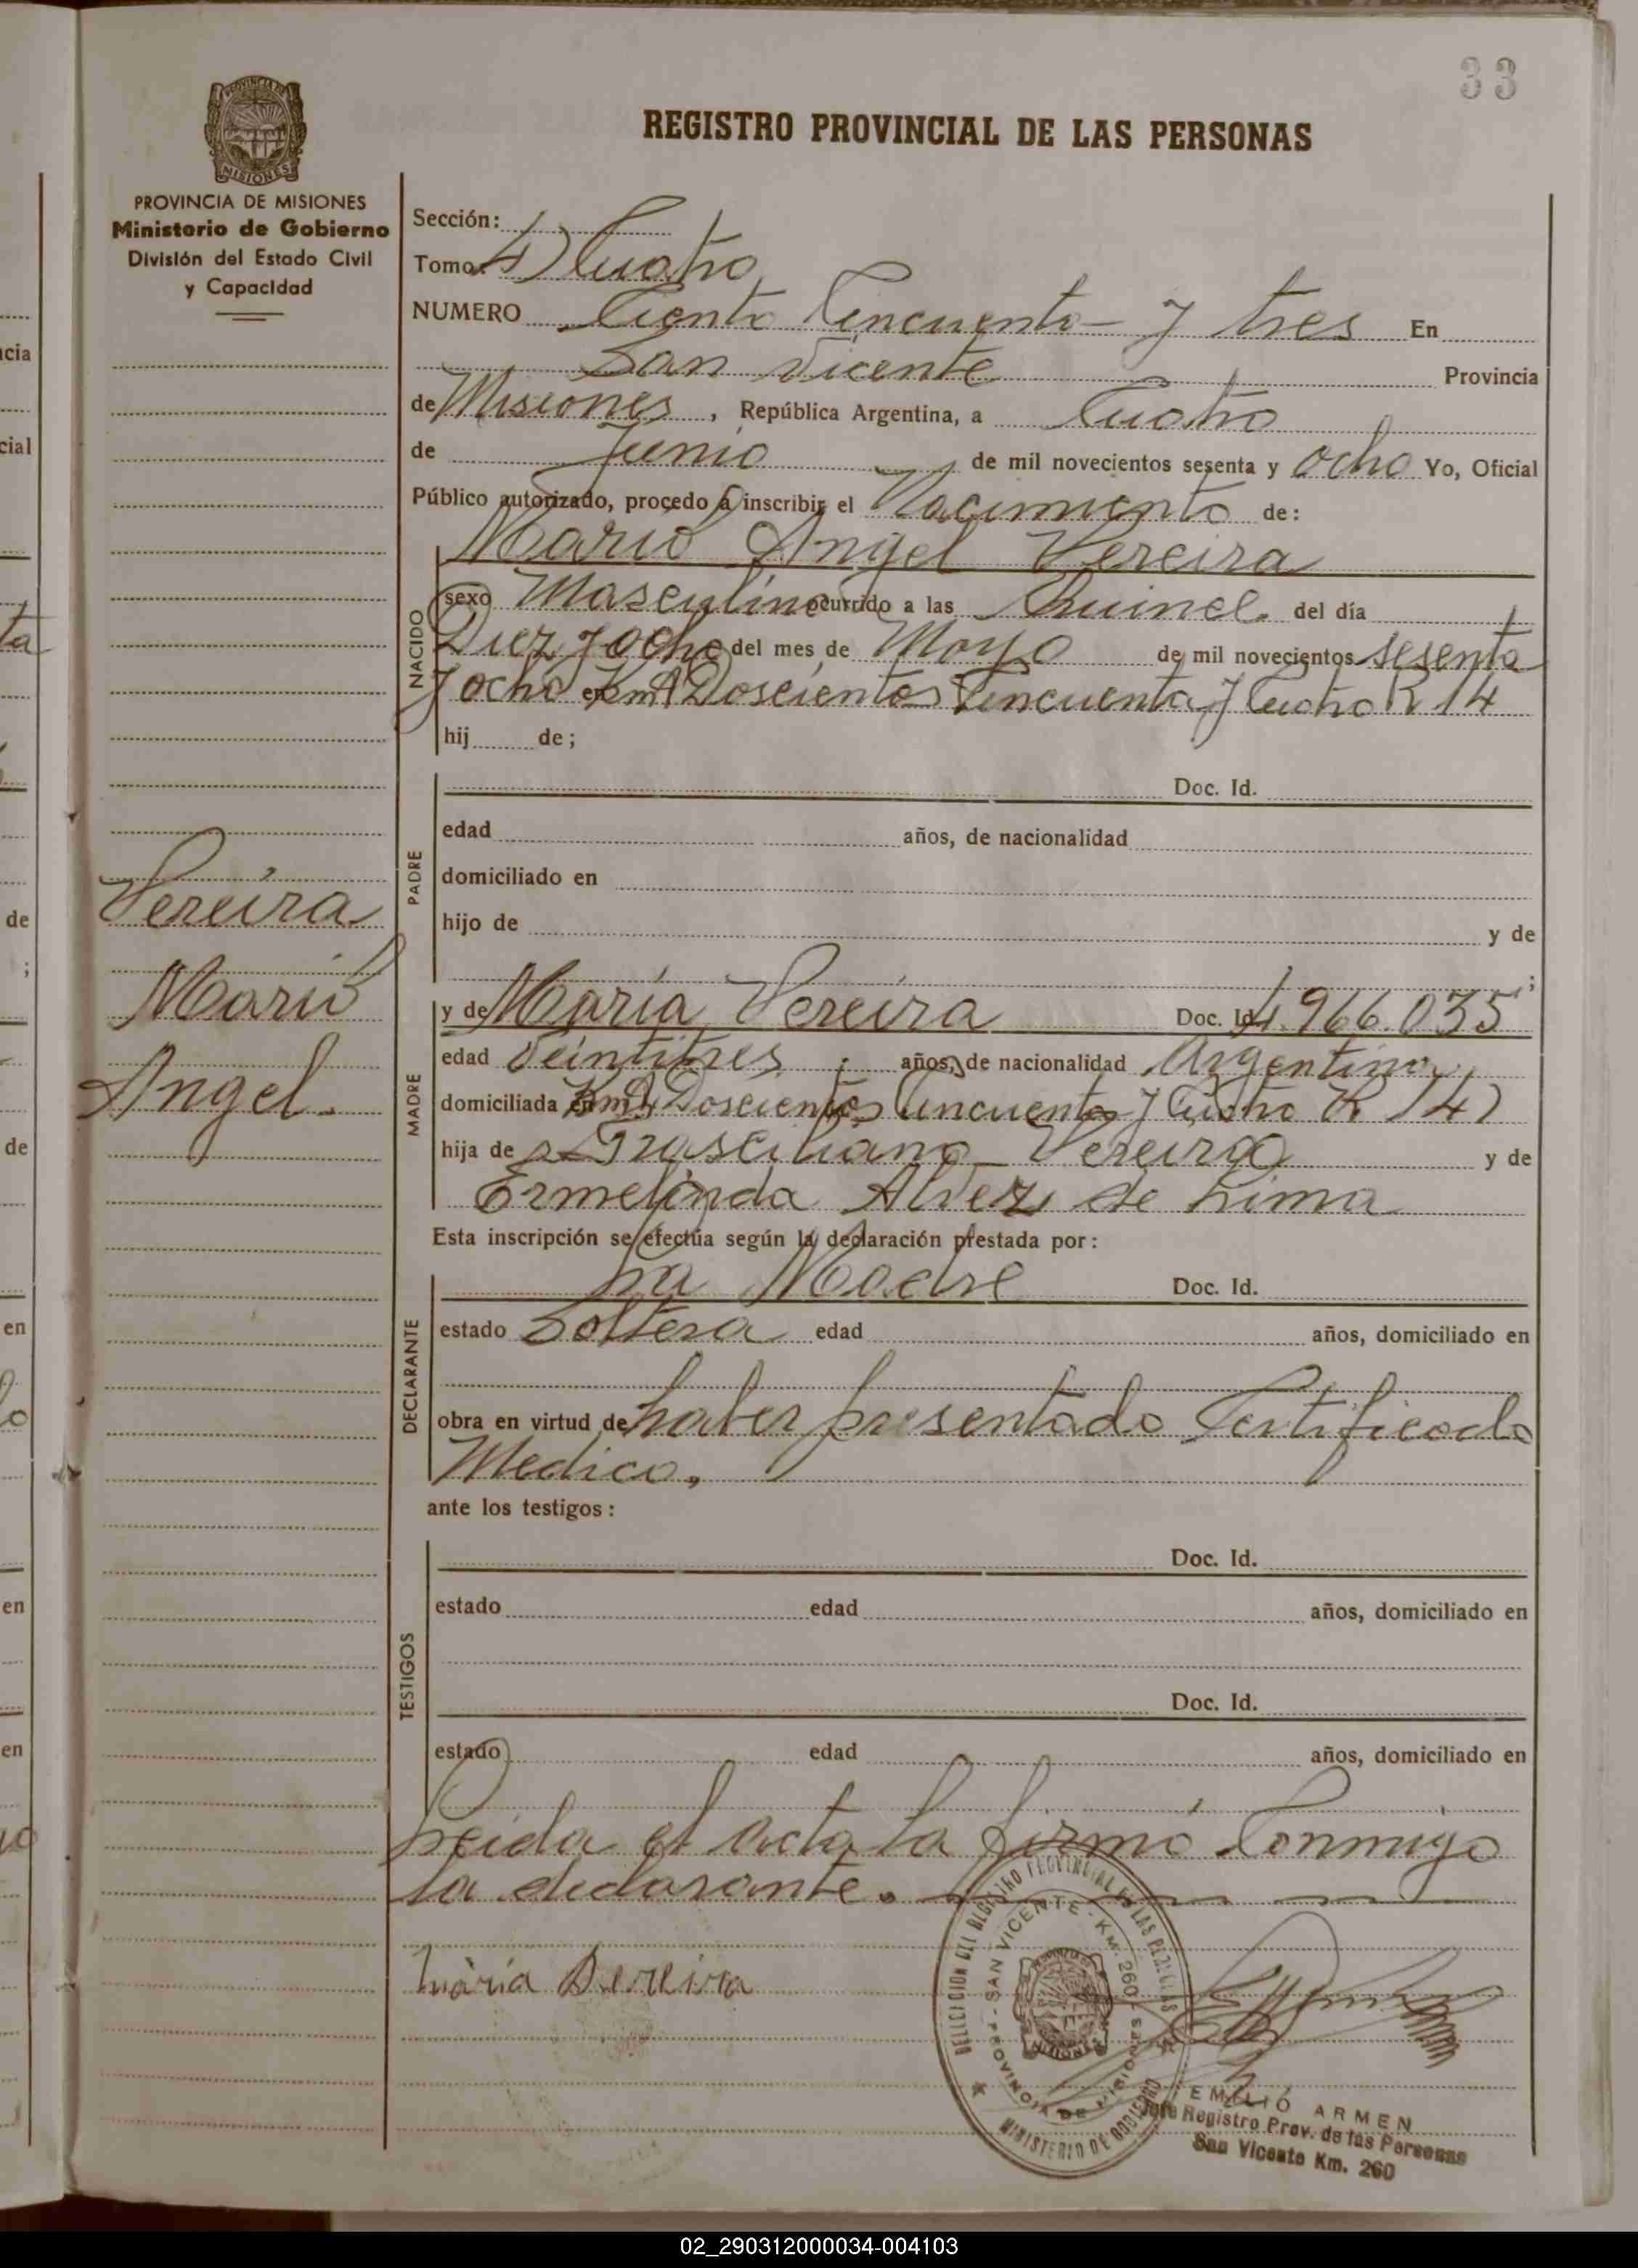 33
PROVINCIA DE MISIONES
Ministerio de Gobierno
División del Estado Civil
y Capacidad
Pereira
Mario
Angel.
REGISTRO PROVINCIAL DE LAS PERSONAS
Sección:
Tomo: 4) Cuatro
NUMERO Ciento Cincuenta y tres En
San Vicente Provincia
de Misiones, República Argentina, a Cuatro
de Junio de mil novecientos sesenta y ocho Yo, Oficial
Público autorizado, procedo a inscribir el Nacimiento de:
Mario Angel Pereira
NACIDO
sexo Masculino ocurrido a las Quince. del día
Diez y ocho del mes de Mayo de mil novecientos sesenta
y ocho en Km Doscientos Cincuenta y Cuatro R 14
hij de;
PADRE
Doc. Id.
edad años, de nacionalidad
domiciliado en
hijo de y de
;
MADRE
y de Maria Pereira Doc. Id. 4.966.035
edad Veintitres años, de nacionalidad Argentina
domiciliada en Km Doscientos Cincuenta y Cuatro R 14)
hija de Pereira y de
Ermelinda Alvez de Lima
Esta inscripción se efectúa según la declaración prestada por:
DECLARANTE
La Madre Doc. Id.
estado Soltera edad años, domiciliado en
obra en virtud de haber presentado Certificado
Medico.
ante los testigos:
TESTIGOS
Doc. Id.
estado edad años, domiciliado en
Doc. Id.
estado edad años, domiciliado en
Leida el acta la firmó Conmigo
la declarante.
Maria Pereira
DELEGACION DEL REGISTRO PROVINCIAL DE LAS PERSONAS
SAN VICENTE - KM. 260
PROVINCIA DE MISIONES
MINISTERIO DE GOBIERNO
EMILIO ARMEN
Jefe Registro Prov. de las Personas
San Vicente Km. 260
02_290312000034-004103